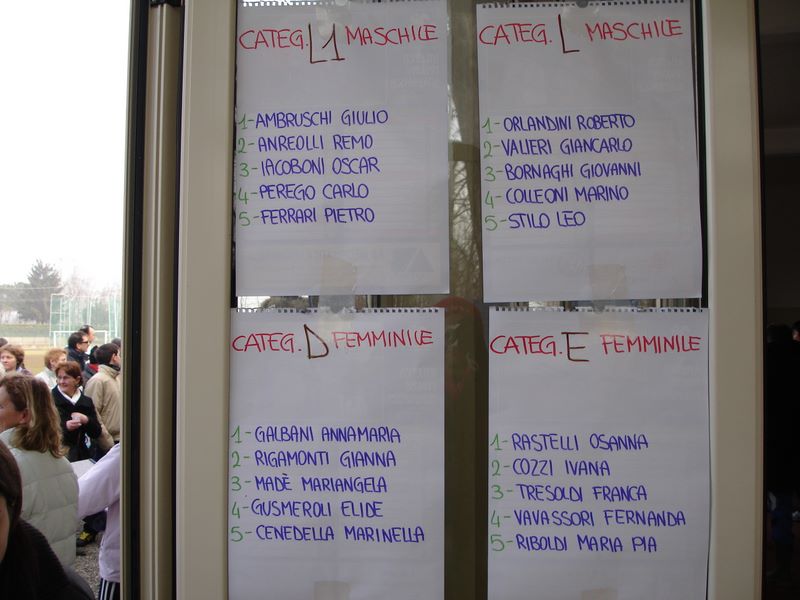 CATEG. L1 MASCHILE
1- AMBRUSCHI GIULIO
2- ANREOLLI REMO
3- IACOBONI OSCAR
4- PEREGO CARLO
5- FERRARI PIETRO
CATEG. L MASCHILE
1- ORLANDINI ROBERTO
2- VALIERI GIANCARLO
3- BORNAGHI GIOVANNI
4- COLLEONI MARINO
5- STILO LEO
CATEG. D FEMMINILE
1- GALBANI ANNAMARIA
2- RIGAMONTI GIANNA
3- MADÈ MARIANGELA
4- GUSMEROLI ELIDE
5- CENEDELLA MARINELLA
CATEG. E FEMMINILE
1- RASTELLI OSANNA
2- COZZI IVANA
3- TRESOLDI FRANCA
4- VAVASSORI FERNANDA
5- RIBOLDI MARIA PIA